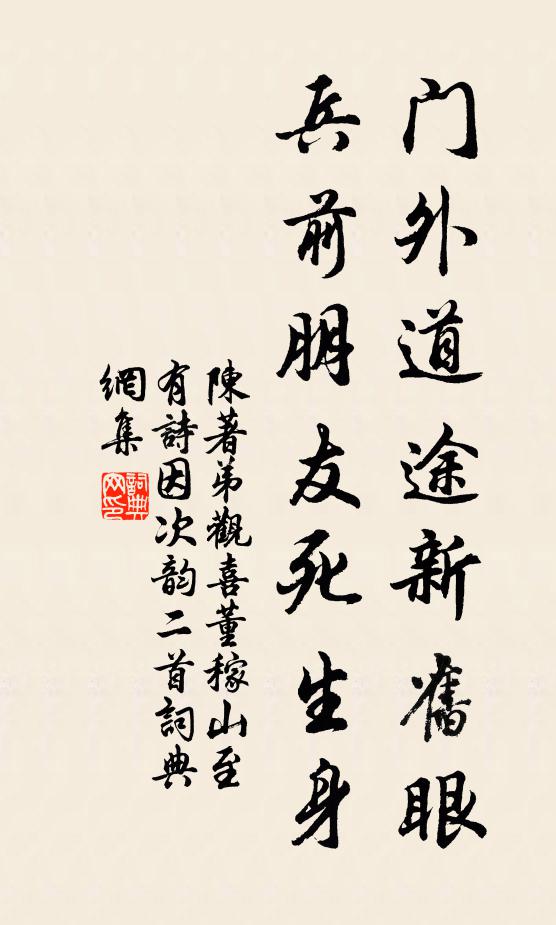 门外道途新舊眼
兵前朋友死生身
陳著弟觀喜董稼山至
有詩因次韵二首詞典
網集
詞典
网印